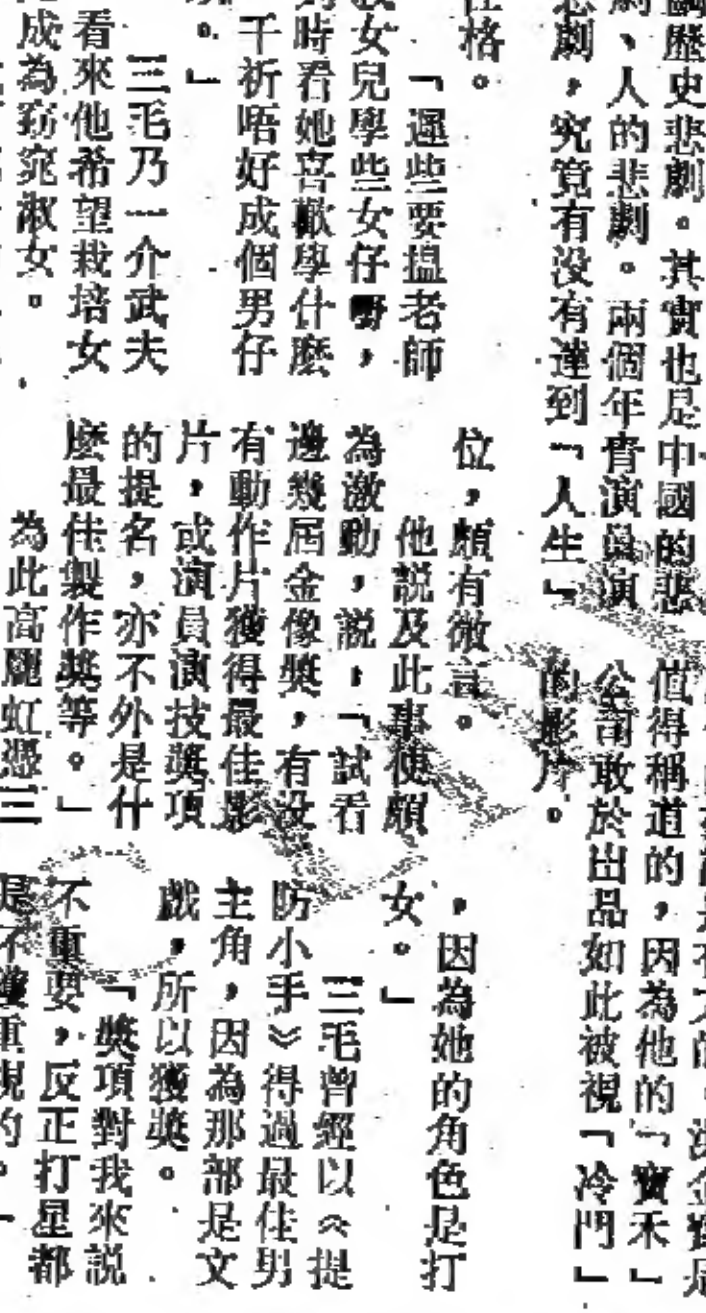 歷史悲劇。其實也是中國的悲
劇、人的悲劇。兩個年青演員演
悲劇，究竟有沒有達到「人生」
值得稱道的，因為他的「寶禾」
公司敢於出品如此被視「冷門」
的影片。
性格。
「遲些要搵老師
女兒學些女仔嘢，
時看她喜歡學什麼
千祈唔好成個男仔
。」
三毛乃一介武夫
看來他希望栽培女
成為窈窕淑女。
位，頗有微言。
他說及此事使頗
為激動，說，「試看
邊幾屆金像獎，有沒
有動作片獲得最佳影
片，或演員演技獎項
的提名，亦不外是什
麼最佳製作獎等。」
為此高麗虹憑三
，因為她的角色是打
女。」
三毛曾經以《提
防小手》得過最佳男
主角，因為那部是文
戲，所以獲獎。
「獎項對我來說
不重要，反正打星都
是不獲重視的。」